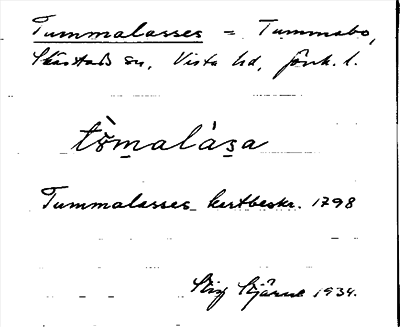 Tummalasses = Tummabo,
Skärstads sn, Vista hd, Jönk. l.
tòmalàsa
Tummalasses kartbeskr. 1798
Stig Stjärne 1934.